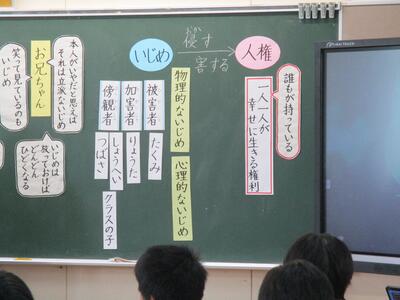 誰もが持っている
人権
一人一人が
幸せに生きる権利
侵す
害する
いじめ
物理的ないじめ
心理的ないじめ
被害者
たくみ
加害者
りょうた
しょうへい
傍観者
つばさ
クラスの子
本人がいやだと思えば
それは立派ないじめ
お兄ちゃん
笑って見ているのも
いじめ
いじめは
放っておけば
どんどん
ひどくなる